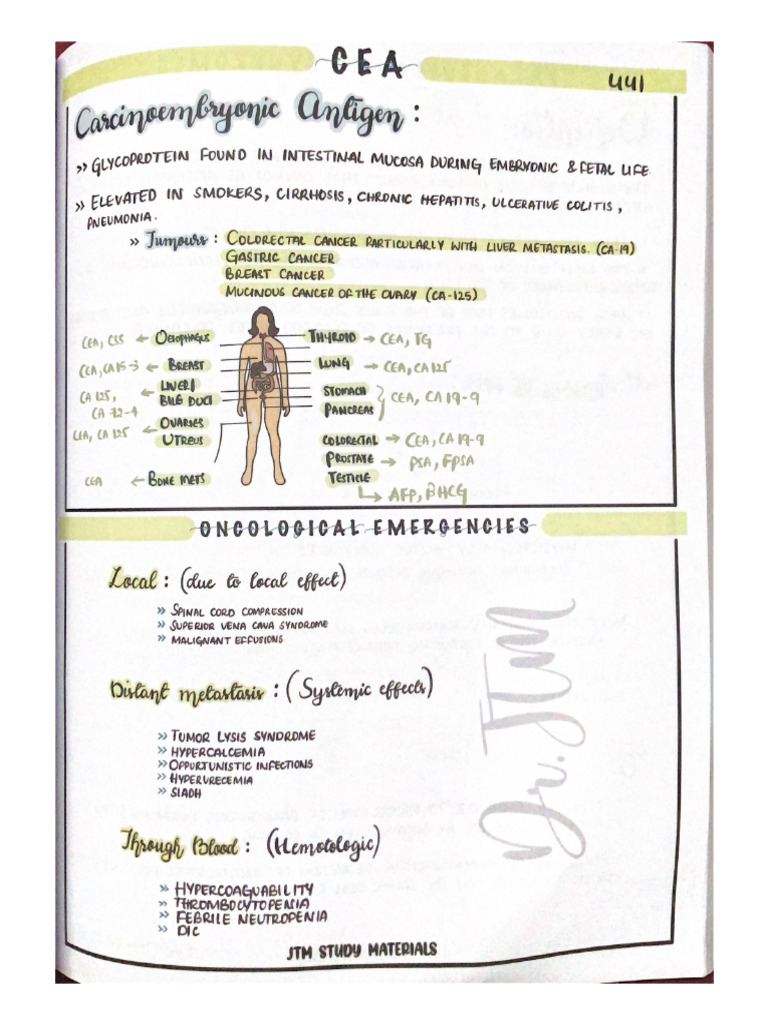 CEA
441
Carcinoembryonic Antigen :
» GLYCOPROTEIN FOUND IN INTESTINAL MUCOSA DURING EMBRYONIC & FETAL LIFE.
» ELEVATED IN SMOKERS, CIRRHOSIS, CHRONIC HEPATITIS, ULCERATIVE COLITIS,
PNEUMONIA.
» Tumours : COLORECTAL CANCER PARTICULARLY WITH LIVER METASTASIS. (CA-19)
GASTRIC CANCER
BREAST CANCER
MUCINOUS CANCER OF THE OVARY (CA-125)
CEA, CSS ← OESOPHAGUS
CEA, CA15-3 ← BREAST
CA 125, ← LIVER/
CA 72-4 BILE DUCT
CEA, CA 125 ← OVARIES
UTREUS
CEA ← BONE METS
THYROID → CEA, TG
LUNG → CEA, CA125
STOMACH } CEA, CA 19-9
PANCREAS
COLORECTAL → CEA, CA19-9
PROSTATE → PSA, FPSA
TESTICLE
↳ AFP, BHCG
ONCOLOGICAL EMERGENCIES
Local : (due to local effect)
» SPINAL CORD COMPRESSION
» SUPERIOR VENA CAVA SYNDROME
» MALIGNANT EFFUSIONS
Distant metastasis : (Systemic effects)
» TUMOR LYSIS SYNDROME
» HYPERCALCEMIA
» OPPURTUNISTIC INFECTIONS
» HYPERURECEMIA
» SIADH
Through Blood : (Hemotologic)
» HYPERCOAGUABILITY
» THROMBOCYTOPENIA
» FEBRILE NEUTROPENIA
» DIC
Dr. JTM
JTM STUDY MATERIALS